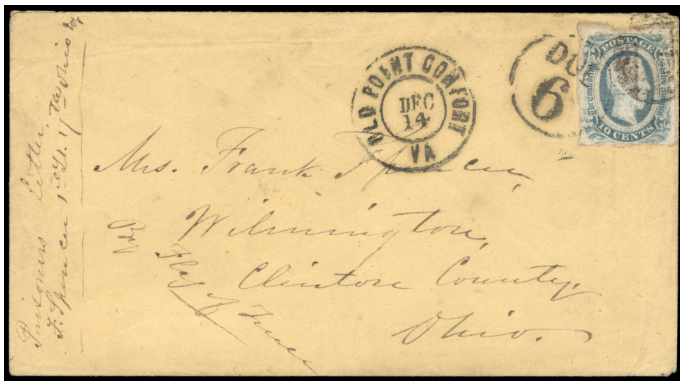 Prisoners Letter.
F. Spencer 1st Lt. 17th Ohio
OLD POINT COMFORT
DEC
14
VA
DU
6
POSTAGE
10 CENTS
Mrs. Frank Spencer,
Wilmington,
Clinton County,
Ohio.
By Flag of Truce